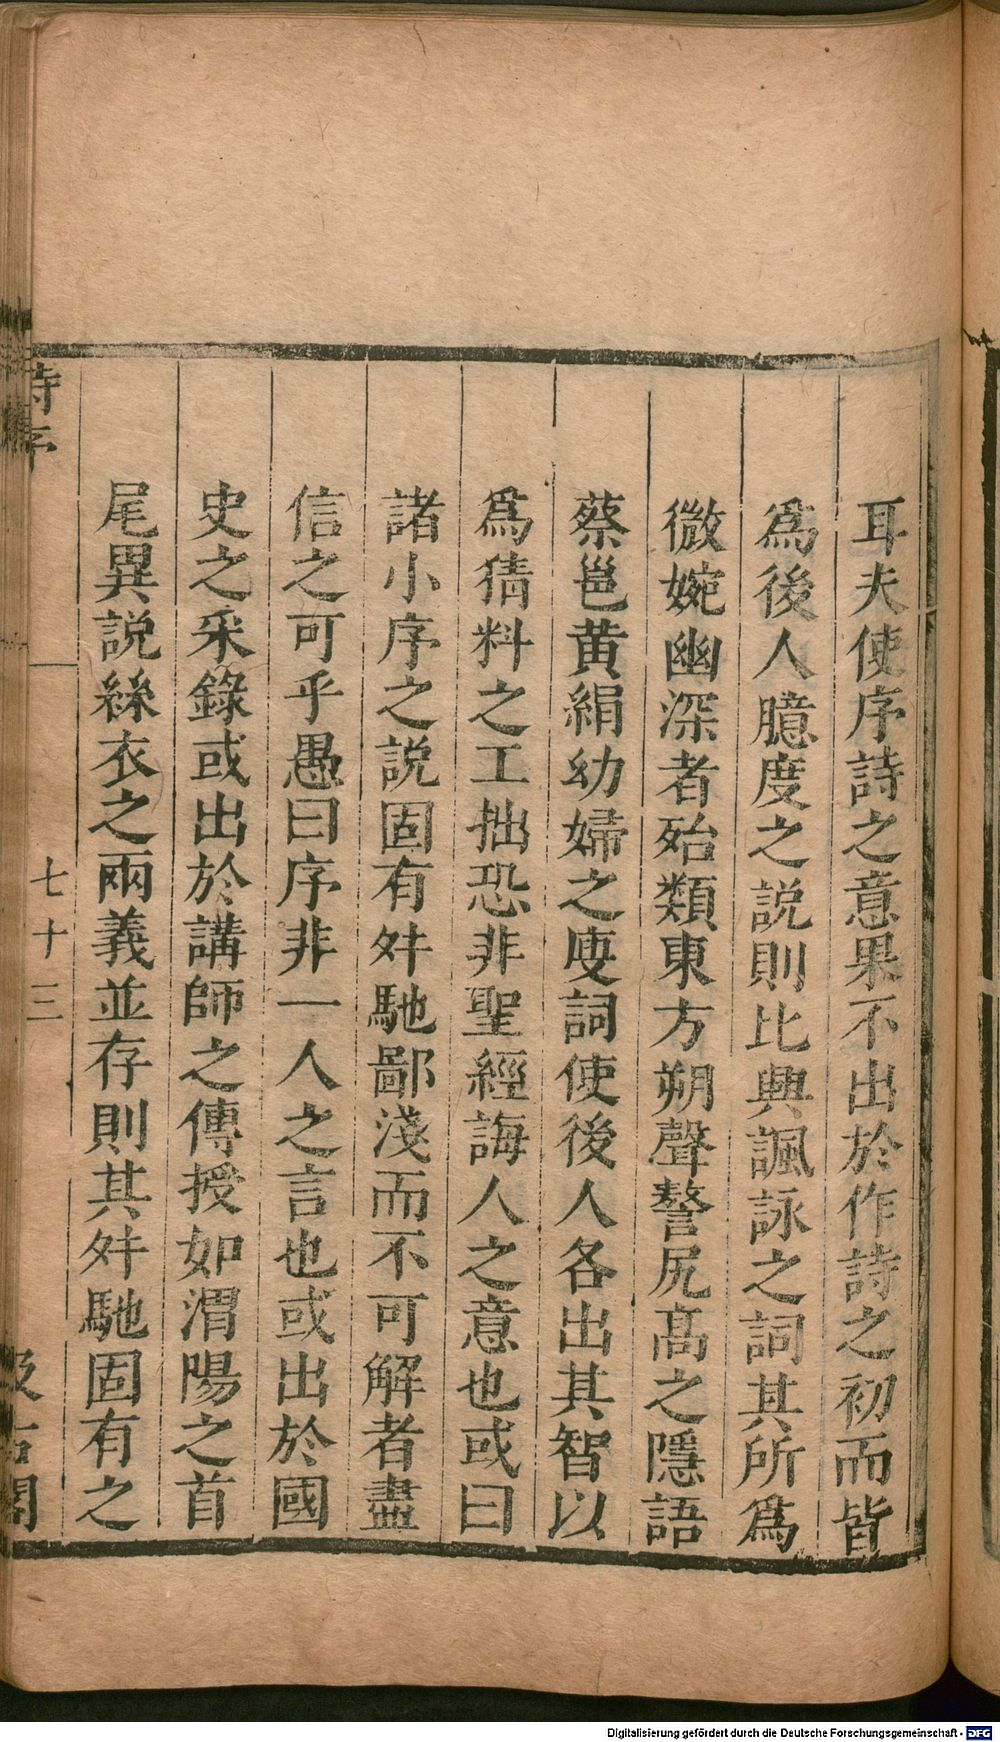 耳夫使序詩之意果不出於作詩之初而皆
爲後人臆度之説則比興諷詠之詞其所爲
微婉幽深者殆類東方朔聲謷尻髙之隱語
蔡邕黄絹幼婦之廋詞使後人各出其智以
爲猜料之工拙恐非聖經誨人之意也或曰
諸小序之説固有舛馳鄙淺而不可解者盡
信之可乎愚曰序非一人之言也或出於國
史之采錄或出於講師之傳授如渭陽之首
尾異説絲衣之兩義並存則其舛馳固有之
詩序
七十三
汲古閣
Digitalisierung gefördert durch die Deutsche Forschungsgemeinschaft - DFG